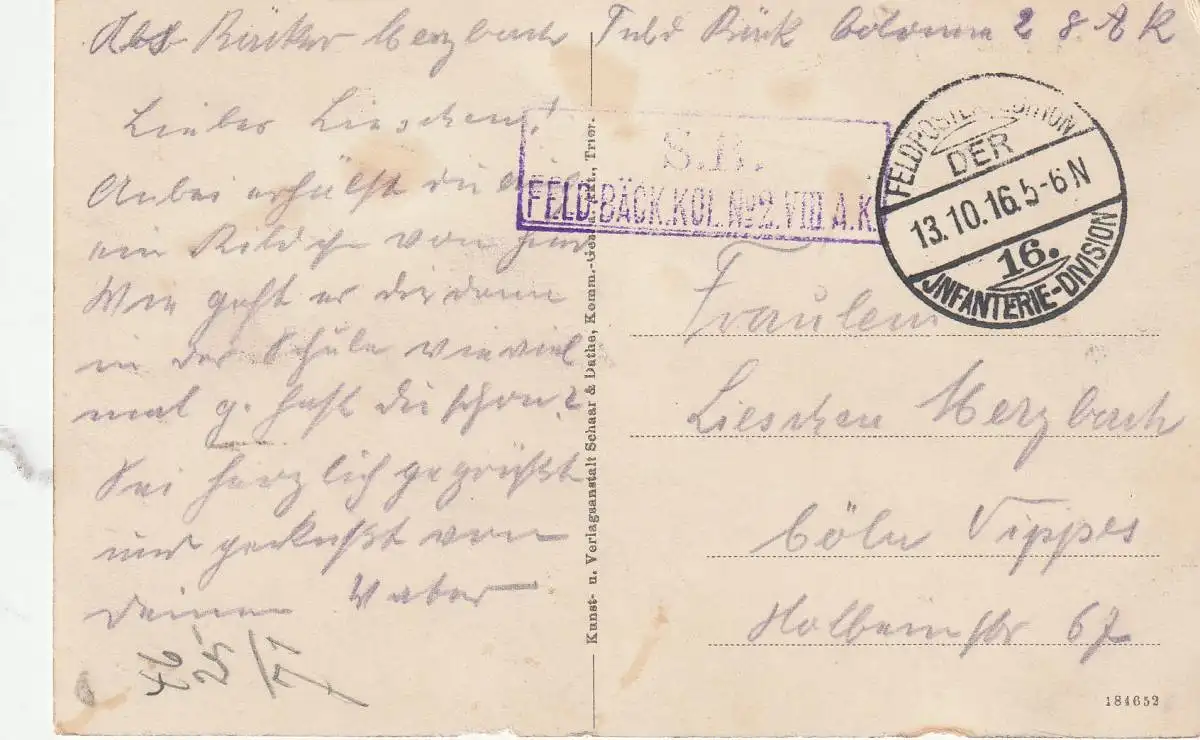 Abs Bäcker Merzbach Feld Bäck Colonne 2 8 A K
Liebes Lieschen!
Anbei erhälst du
ein Bildch von
Wie geht es dir denn
in der Schule wieviel
mal g. hast du schon?
Sei herzlich gegrüßt
und geküßt von
deinem Vater
S.B.
FELD-BÄCK.KOL.No2.VIII.A.K.
FELDPOSTEXPEDITION
DER
13.10.16.5-6N
16.
JNFANTERIE-DIVISION
Kunst- u. Verlagsanstalt Schaar & Dathe, Komm.-Ges. a. Akt., Trier.
Fräulein
Lieschen Merzbach
Cöln Nippes
Holbeinstr 67
184652